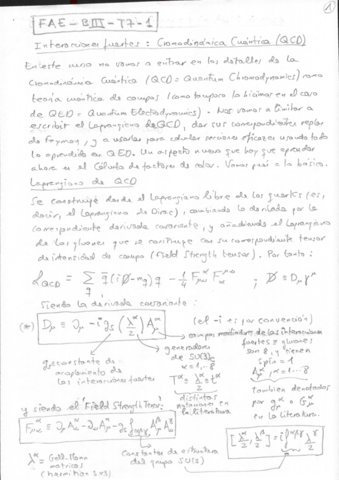 1
FAE-BIII-T7-1
Interacciones fuertes: Cromodinámica Cuántica (QCD)
En este curso no vamos a entrar en los detalles de la
Cromodinámica Cuántica (QCD = Quantum Chromodynamics) como
teoría cuántica de campos (como tampoco lo hicimos en el caso
de QED = Quantum Electrodynamics). Nos vamos a limitar a
escribir el Lagrangiano de QCD, dar sus correspondientes reglas
de Feynman, y a usarlas para calcular secciones eficaces usando todo
lo aprendido en QED. Un aspecto nuevo que hay que aprender
ahora es el Cálculo de factores de color. Vamos pues a lo básico.
Lagrangiano de QCD
Se construye desde el Lagrangiano libre de los quarks (es,
decir, el Lagrangiano de Dirac), cambiando la derivada por la
correspondiente derivada covariante, y añadiendo el Lagrangiano
de los gluones que se construye con su correspondiente tensor
de intensidad de campo (Field Strength tensor). Por tanto:
L_QCD = Σ_q q̄ (i D̸ - m_q) q - 1/4 F^α_μν F^αμν ; D̸ = D_μ γ^μ
Siendo la derivada covariante:
(*) D_μ ≡ ∂_μ - i g_s (λ^α/2) A^α_μ (el -i es por convención)
campos mediadores de las interacciones
fuertes = gluones
son 8, y tienen
spin = 1
A^α_μ, α=1...8
generadores
de SU(3)
α=1...8
T^α = λ^α/2 = t^α
distintas
notaciones en
la literatura
g_s: constante de
acoplamiento de
las interacciones fuertes
también denotados
por g^α_μ = G^α_μ
en la literatura.
y siendo el Field Strength Tensor:
F^α_μν = ∂_μ A^α_ν - ∂_ν A^α_μ + g_s f_αβγ A^β_μ A^γ_ν
[λ^α/2, λ^β/2] = i f^αβγ λ^γ/2
Constantes de estructura
del grupo SU(3)
λ^α = Gell-Mann
matrices
(hermíticas 3×3)